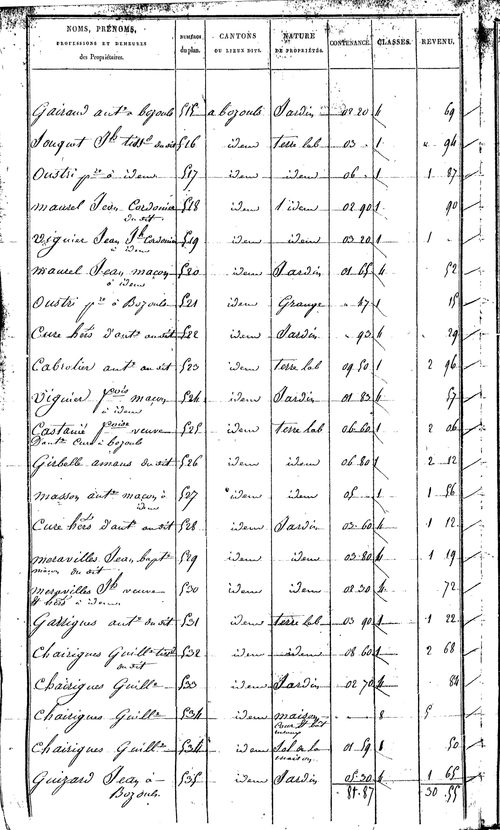 NOMS, PRÉNOMS, PROFESSIONS ET DEMEURES des Propriétaires. NUMÉROS du plan. CANTONS OU LIEUX DITS. NATURE DE PROPRIÉTÉS. CONTENANCE. CLASSES. REVENU.
515 a bozouls Jardin 02 20 4 69
516 idem terre lab 03 . 1 94
Oustri à idem 517 idem idem 06 . 1 1 87
Maurel Jean Cordonier du dit 518 idem idem 02 90 1 90
Viguier Jean Jh Cordonier à idem 519 idem idem 03 20 1 1
Maurel Jean maçon à idem 520 idem Jardin 01 65 4 52
Oustri à Bozouls 521 idem Grange 47 1 15
Cure hérs d'ant. au dit 522 idem Jardin 93 4 29
Cabrolier ant. au dit 523 idem terre lab 09 50 1 2 96
Viguier maçon à idem 524 idem Jardin 01 83 4 57
Castanié veuve D'ant. Cure à bozouls 525 idem terre lab 06 60 1 2 06
Girbelle amans du dit 526 idem idem 06 80 1 2 12
Masson ant. maçon à idem 527 idem idem 05 . 1 1 56
Cure hérs d'ant. au dit 528 idem Jardin 03 60 4 1 12
Moravilles Jean bapt. maçon du dit 529 idem idem 03 80 4 1 19
Moravilles Jh veuve et hérs à idem 530 idem idem 02 30 4 72
Garrigues ant. du dit 531 idem terre lab 03 90 1 1 22
Chairigues Guill. du dit 532 idem idem 08 60 1 2 68
Chairigues Guill. 533 idem Jardin 02 70 4 84
Chairigues Guill. 534 idem maison 8 5
Chairigues Guill. 534 idem Sol de la maison 01 59 1 50
Guizard Jean à Bozouls 535 idem Jardin 05 30 4 1 65
81 87 30 55